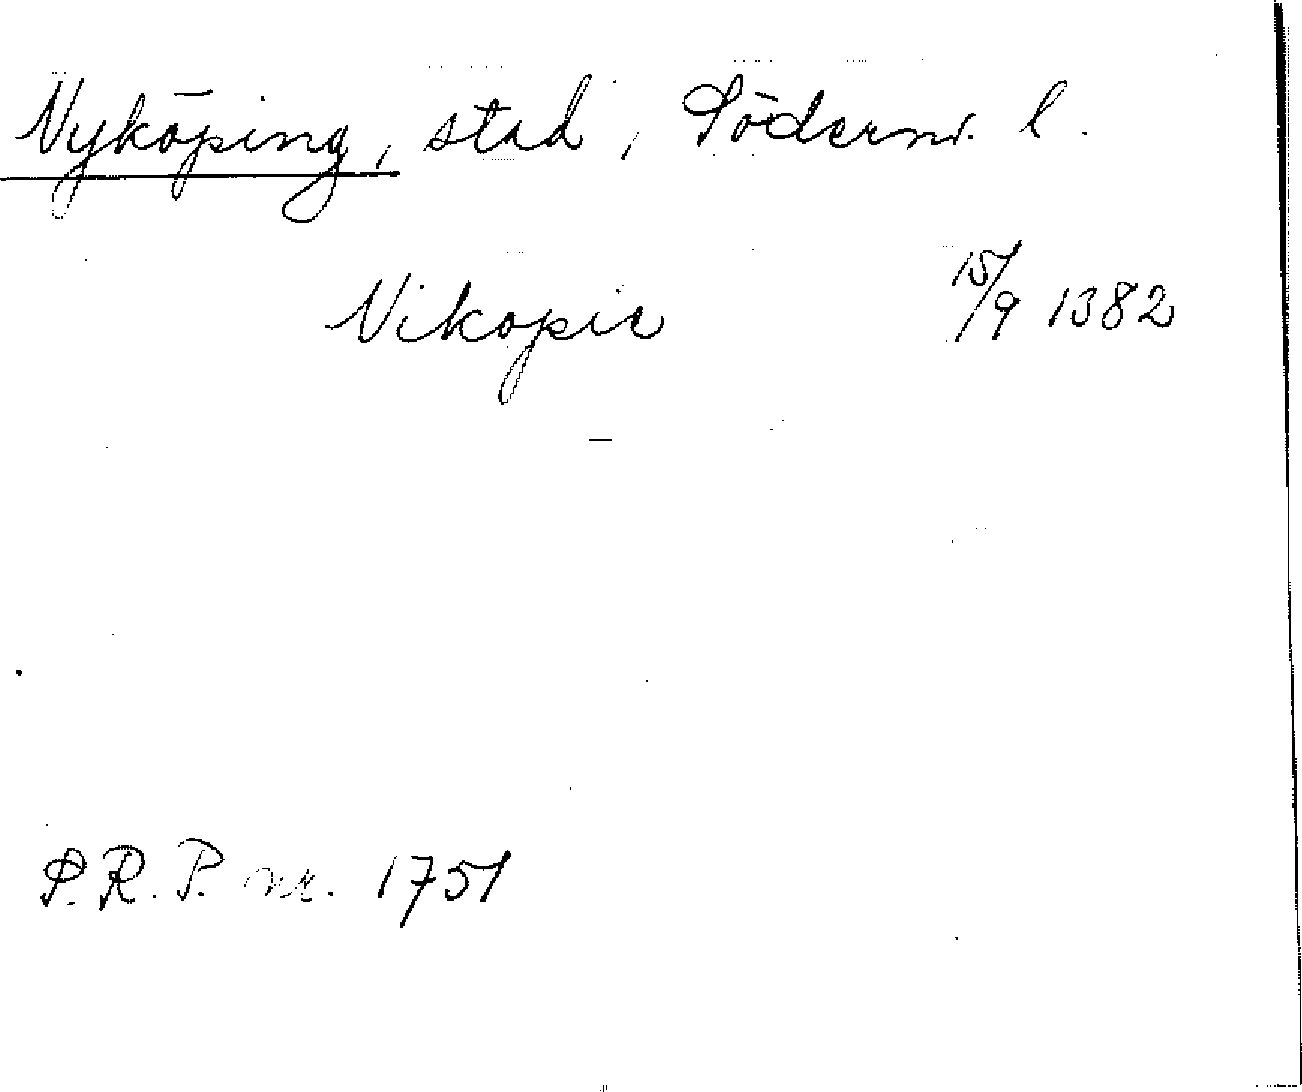 Nyköping, stad, Söderm. l.
Nikopia 15/9 1382
S.R.P. nr. 1751